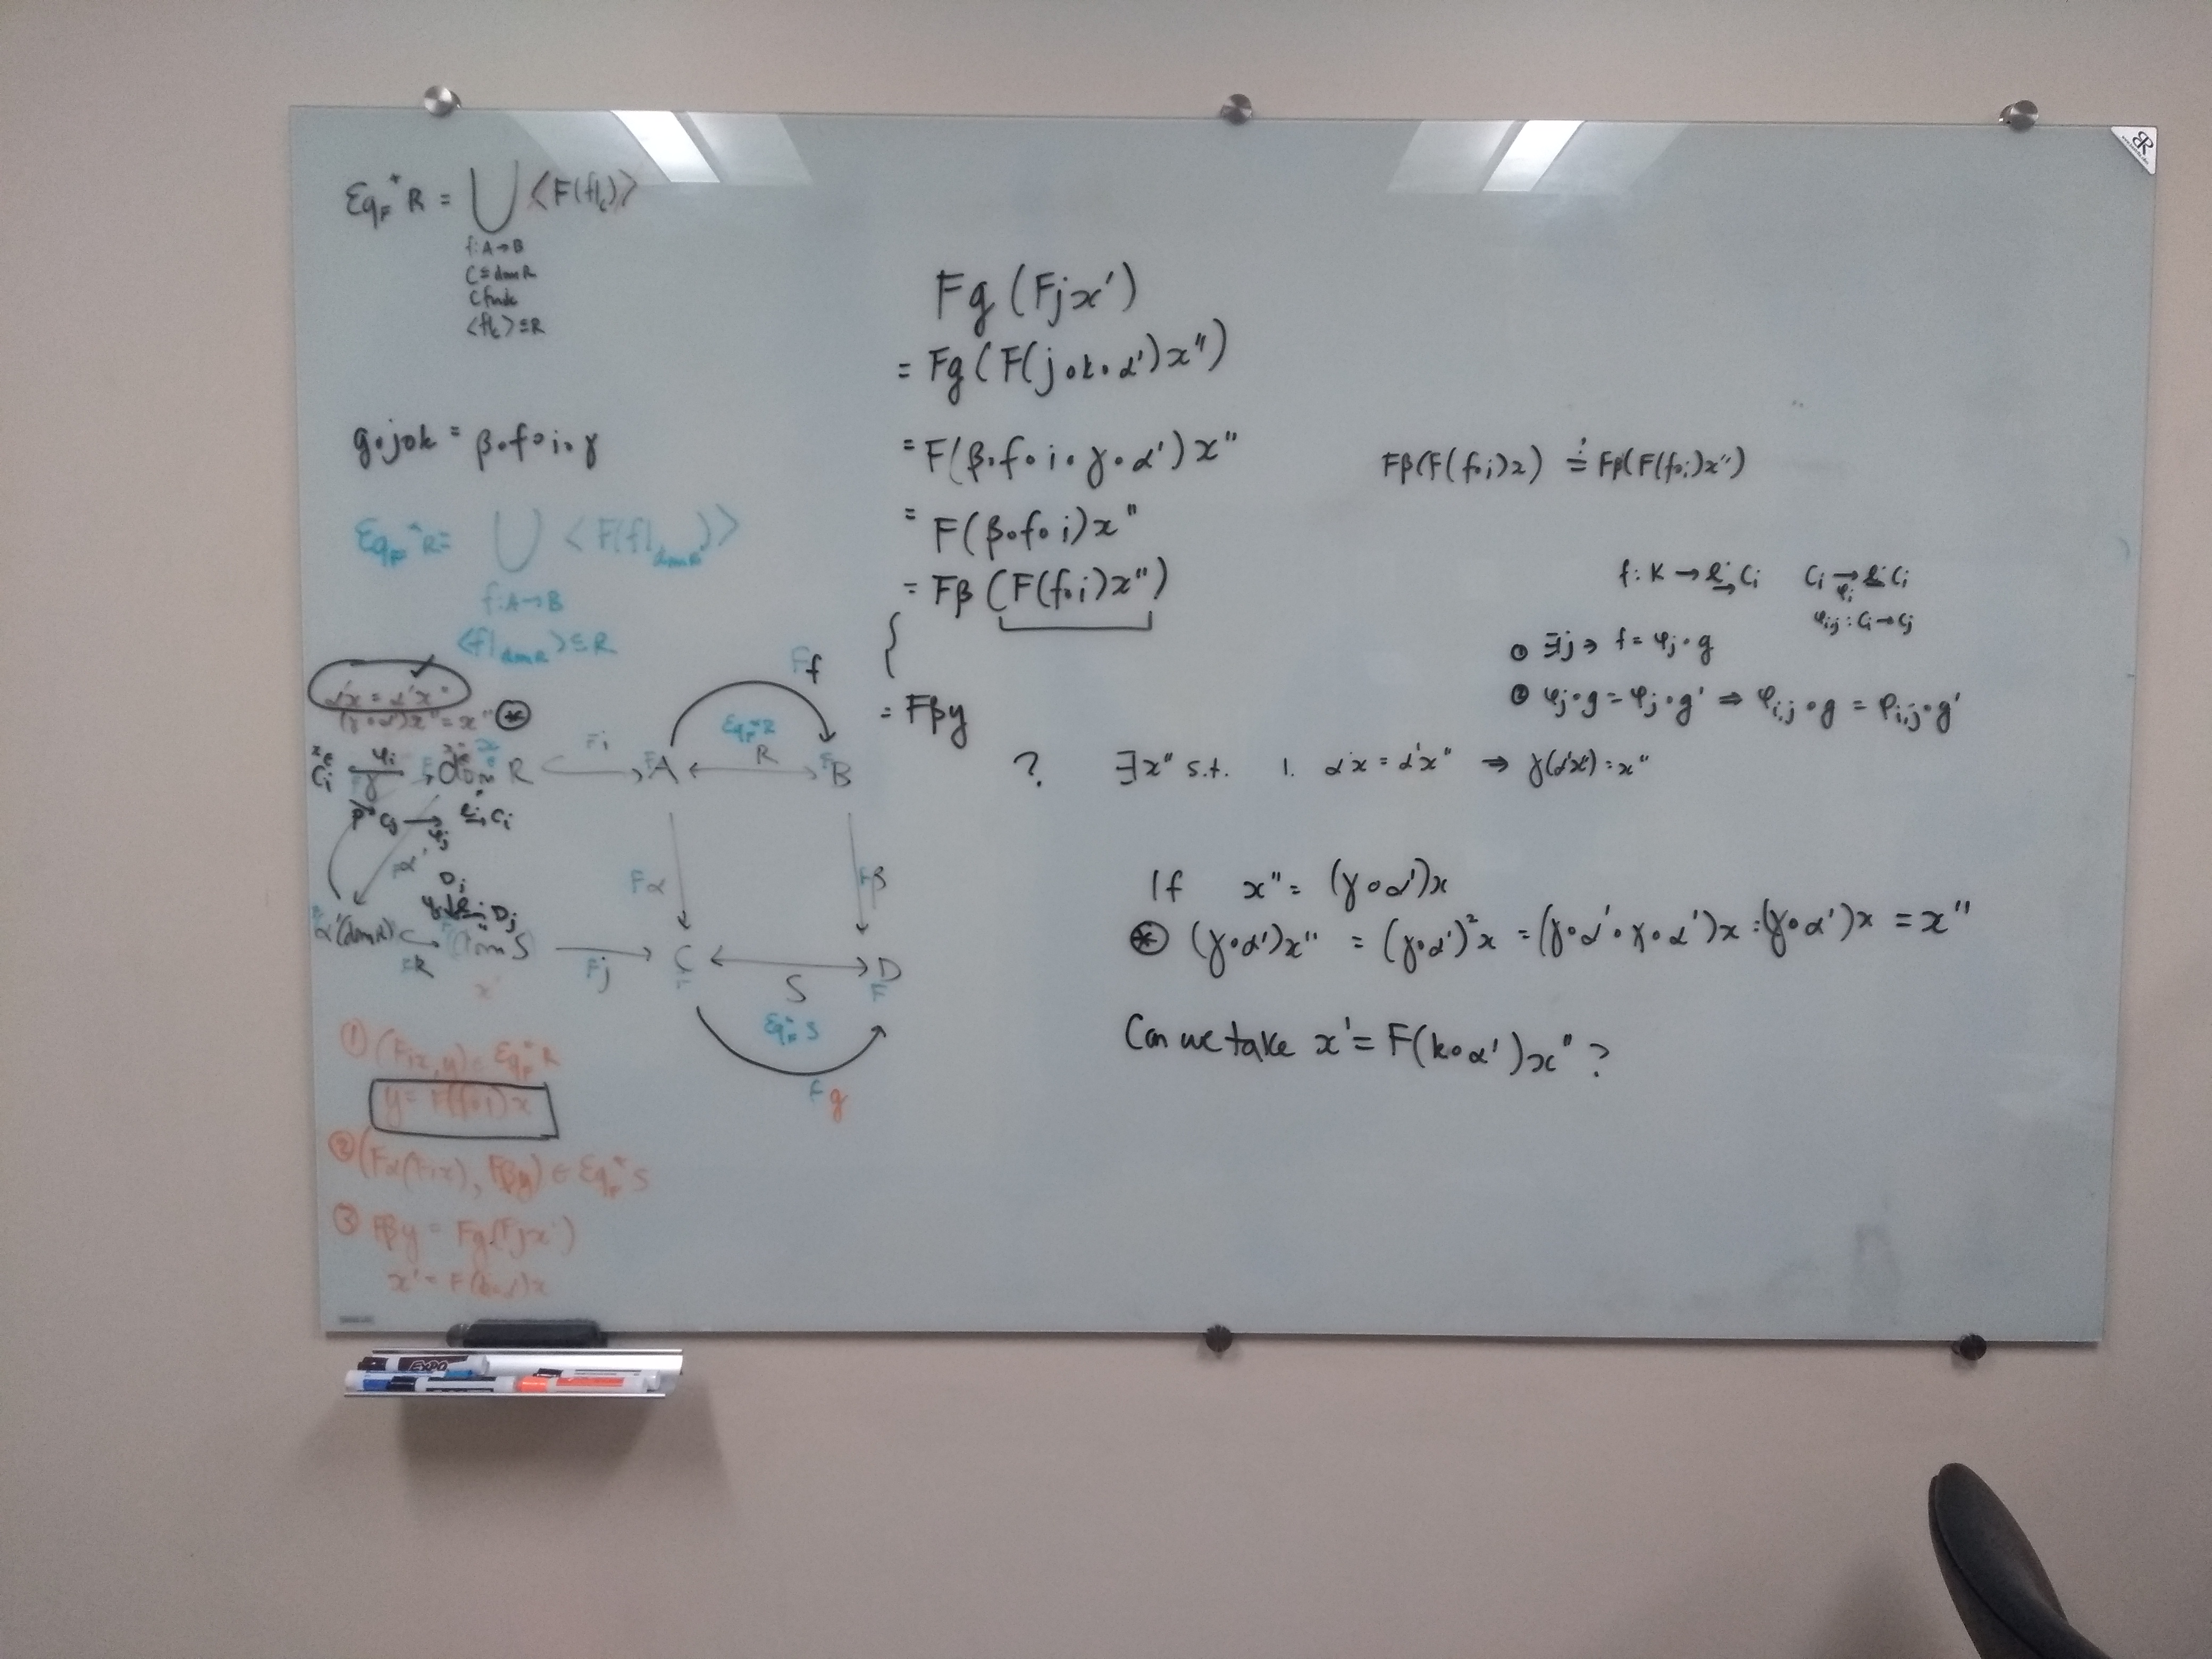 Eq_F^* R = ⋃ ⟨F(f|_C)⟩
f: A → B
C ⊆ dom R
C finite
⟨f|_C⟩ ⊆ R
g∘j∘k = β∘f∘i∘γ
Eq_F^* R = ⋃ ⟨F(f|_{dom R})⟩
f: A → B
⟨f|_{dom R}⟩ ⊆ R
α'x = α'x" ✓
(γ∘α')x" = x" ⊛
C_i φ_i Fγ dom R Fi FA Eq_F^* R R FB Ff
C_j → φ_j lim C_i
Fα' Fα Fβ
D_j
lim D_j
α'(dom R) Fk dom S Fj C F S D F
x' Eq_F^* S
Fg
① (Fix, y) ∈ Eq_F^* R
y = F(f∘i)x
② (Fα(Fix), Fβy) ∈ Eq_F^* S
③ Fβy = Fg(Fjx')
x' = F(k∘α')x
Fg(Fjx')
= Fg(F(j∘k∘α')x")
= F(β∘f∘i∘γ∘α')x"
= F(β∘f∘i)x"
= Fβ(F(f∘i)x")
= Fβy
Fβ(F(f∘i)x) ≟ Fβ(F(f∘i)x")
f: K → lim C_i C_i →φ_i lim C_i
φ_ij: C_i → C_j
① ∃j ∋ f = φ_j∘g
② φ_j∘g = φ_j∘g' ⇒ φ_{i,j}∘g = φ_{i,j}∘g'
? ∃x" s.t. 1. α'x = α'x" ⇒ γ(α'x') = x"
If x" = (γ∘α')x
⊛ (γ∘α')x" = (γ∘α')²x = (γ∘α'∘γ∘α')x = (γ∘α')x = x"
Can we take x' = F(k∘α')x"?
EXPO